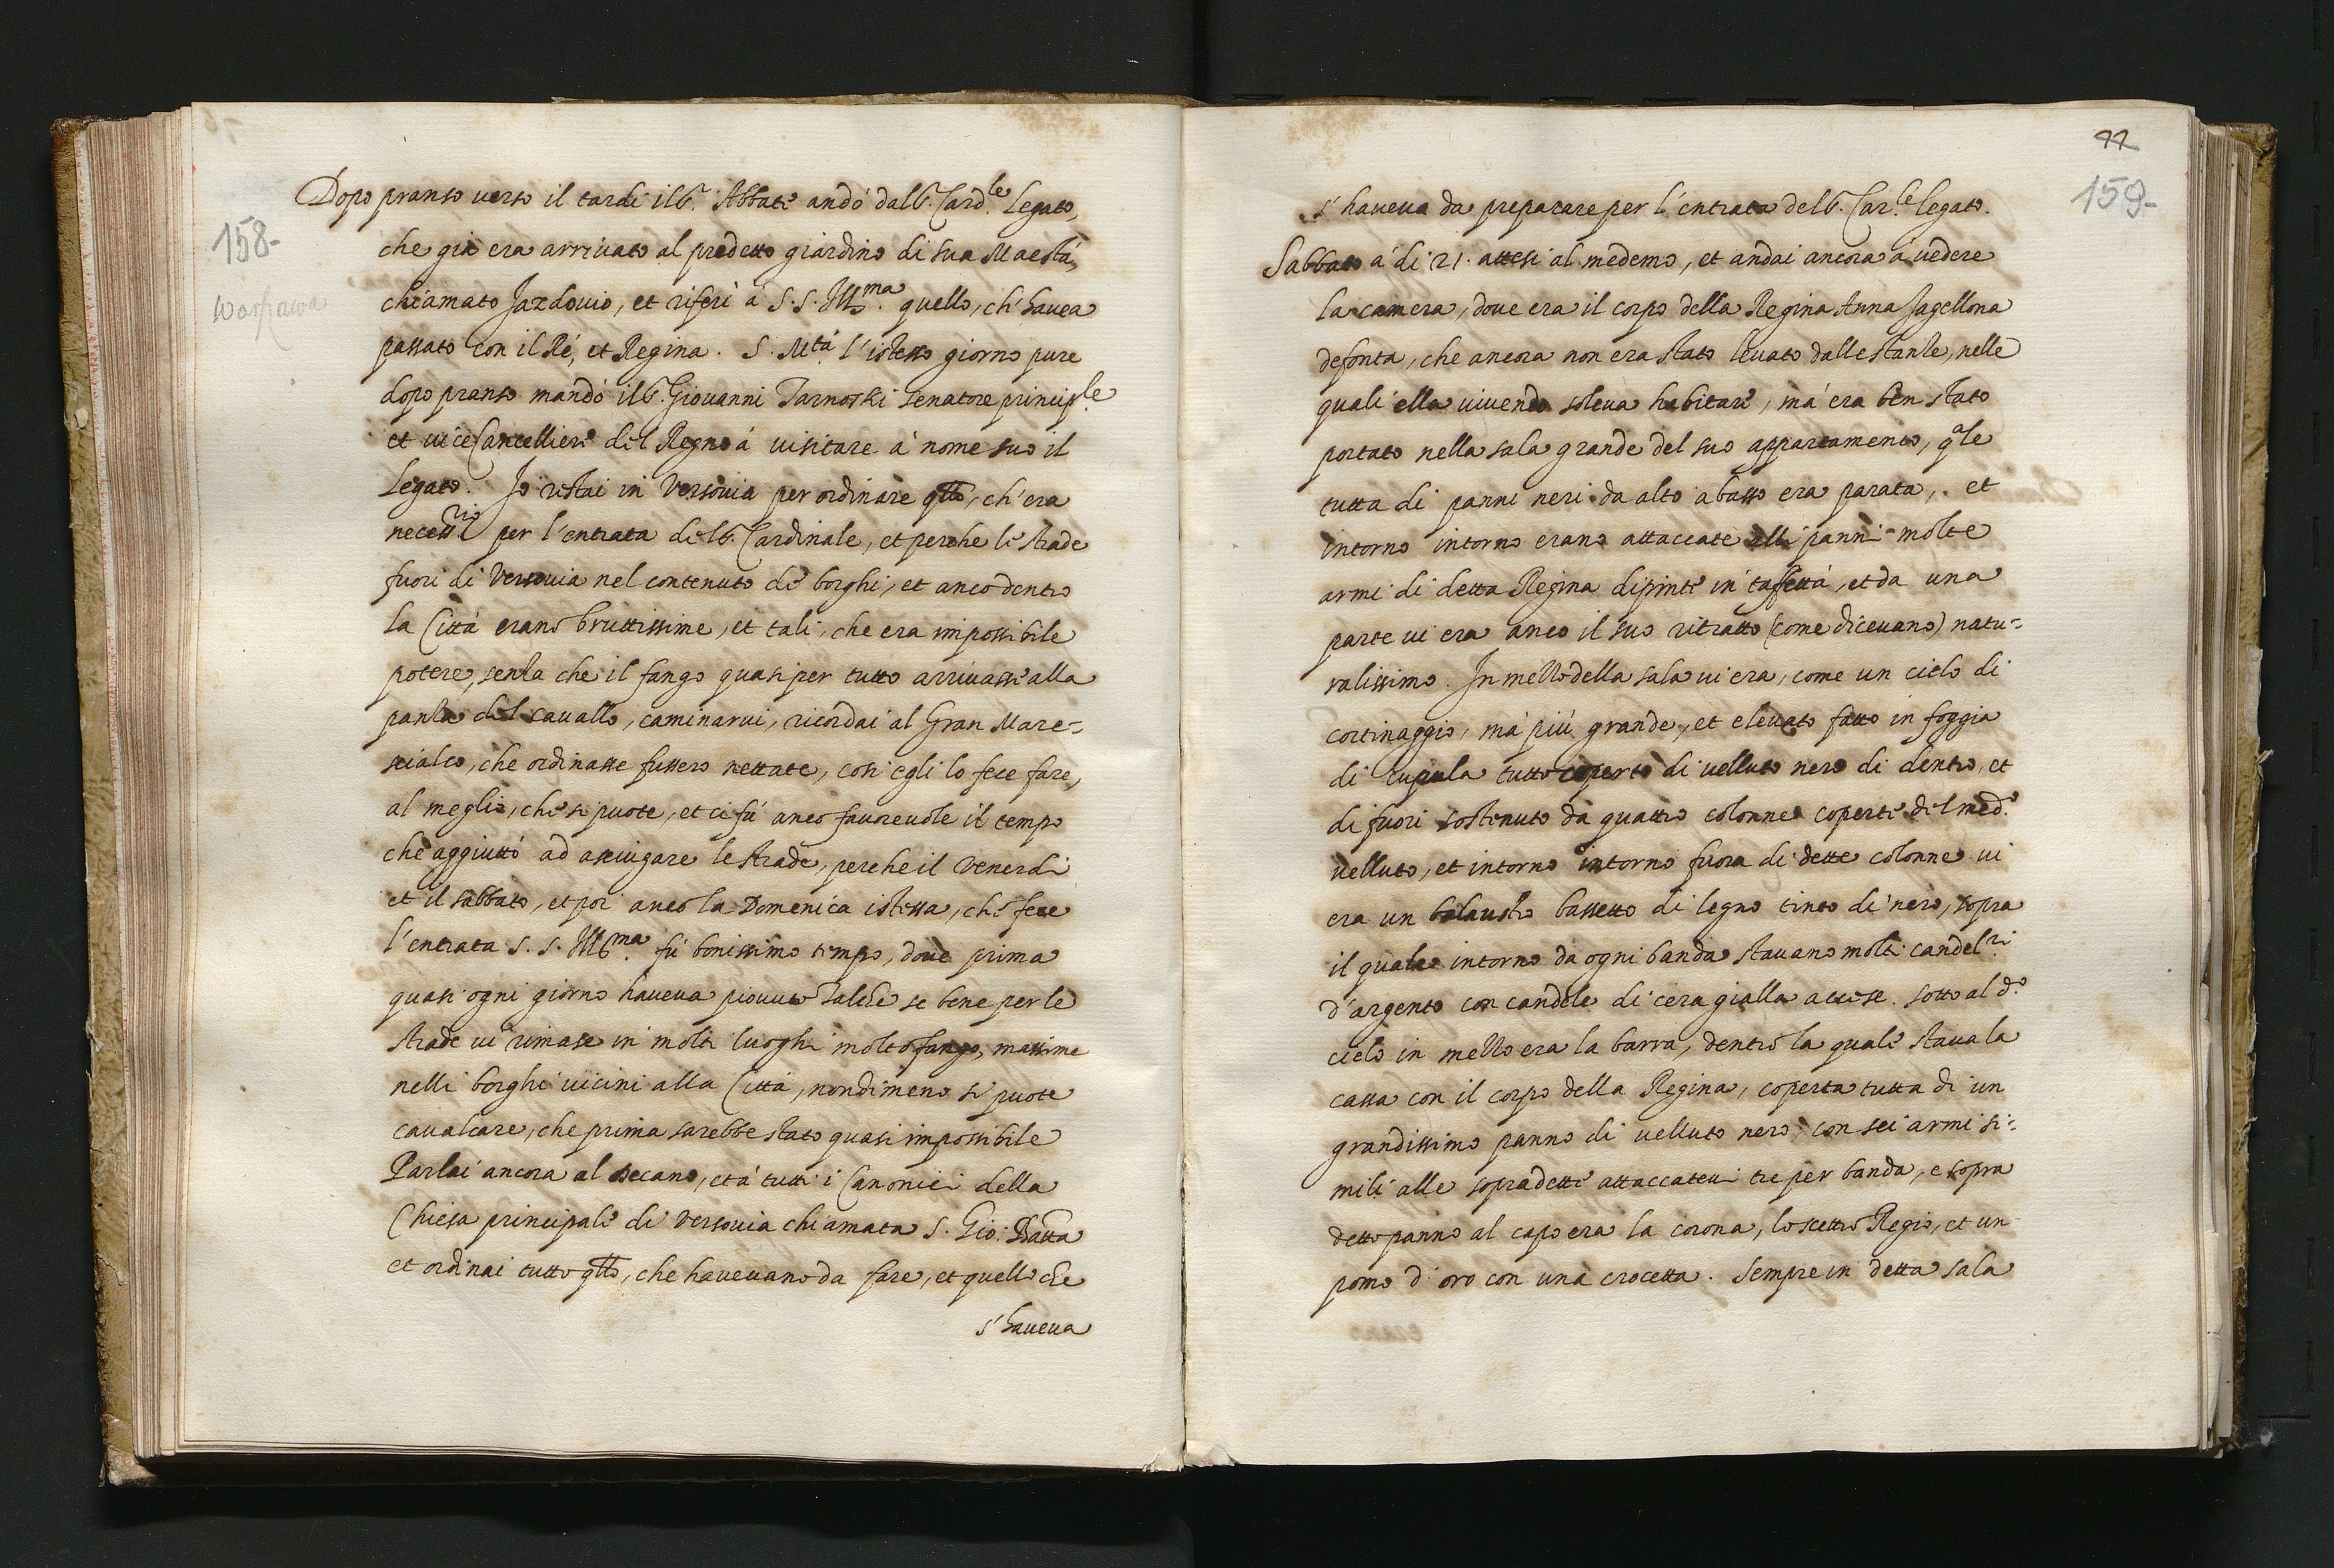 158-
Warszawa
Dopo pranso verso il tardi il S.r Abbate andò dal S.r Card.le Legato,
che già era arrivato al predetto giardino di Sua Maestà,
chiamato Jazdovio, et riferì à S. S. Ill.ma quello, ch'havea
passato con il Ré, et Regina. S. M.tà l'istesso giorno pure
dopo pranso mandò il S.r Giovanni Tarnoski senatore princip.le
et vice Cancelliere del Regno à visitare à nome suo il
Legato. Io restai in Versovia per ordinare qllo, ch'era
necess.rio per l'entrata del S.r Cardinale, et perche le strade
fuori di Versovia nel contenuto de borghi, et anco dentro
la Città erano bruttissime, et tali, che era impossibile
potere, senza che il fango quasi per tutto arrivasse alla
panza del cavallo, caminarvi, ricordai al Gran Mare=
scialco, che ordinasse fussero nettate, così egli lo fece fare,
al meglio, che si puote, et ci fù anco favorevole il tempo
che aggiuttò ad asciugare le strade, perche il Venerdì
et il sabbato, et poi anco la Domenica istessa, che fece
l'entrata S. S. Ill.ma fù bonissimo tempo, dove prima
quasi ogni giorno haveva piovuto talche se bene per le
strade vi rimase in molti luoghi molto fango, massime
nelli borghi vicini alla Città, nondimeno si puote
cavalcare, che prima sarebbe stato quasi impossibile
Parlai ancora al Decano, et à tutti i Canonici della
Chiesa principale di Versovia chiamata S. Gio: Batta
et ordinai tutto qllo, che havevano da fare, et quello che
s'haveva
77
159-
s'haveva da preparare per l'entrata del S.r Car.le legato.
Sabbato à di 21. attesi al medemo, et andai ancora à vedere
la camera, dove era il corpo della Regina Anna Jagellona
defonta, che ancora non era stato levato dalle stanze, nelle
quali ella vivendo soleva habitare, mà era ben stato
portato nella sala grande del suo appartamento, qle
tutta di panni neri da alto à basso era parata, et
intorno intorno erano attaccate alli panni molte
armi di detta Regina dipinte in taffettà, et da una
parte vi era anco il suo ritratto (come dicevano) natu=
ralissimo. In mezzo della sala vi era, come un cielo di
cortinaggio, mà più grande, et elevato fatto in foggia
di cupula tutto coperto di velluto nero di dentro, et
di fuori sostenuto da quattro colonne coperte del med.o
velluto, et intorno intorno fuora di dette colonne vi
era un balaustro bassetto di legno tinto di nero, sopra
il quale intorno da ogni banda stavano molti candel.ri
d'argento con candele di cera gialla accese. sotto al d.o
cielo in mezzo era la barra, dentro la quale stava la
cassa con il corpo della Regina, coperta tutta di un
grandissimo panno di velluto nero, con sei armi si=
mili alle sopradette attaccatevi tre per banda, e sopra
detto panno al capo era la corona, lo scettro Regio, et un
pomo d'oro con una crocetta. Sempre in detta sala